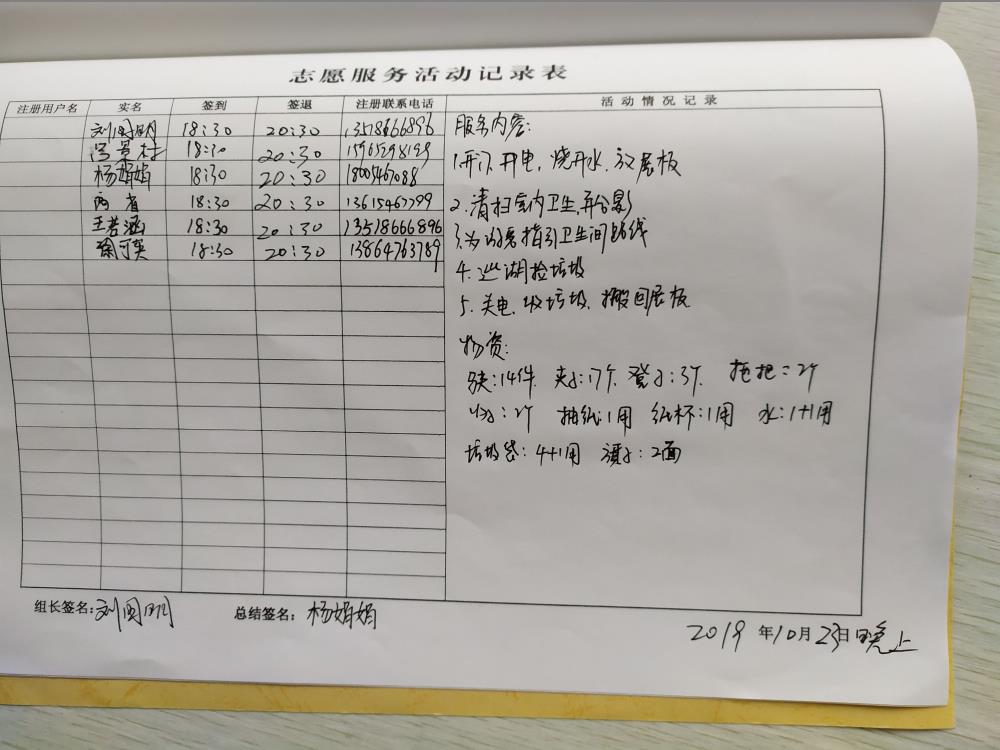 志愿服务活动记录表
注册用户名 实名 签到 签退 注册联系电话 活动情况记录
刘国明 18:30 20:30 13518666896
18:30 20:30
杨娟娟 18:30 20:30 18005467088
18:30 20:30 13615467799
王若涵 18:30 20:30 13518666896
徐可英 18:30 20:30 13864763789
服务内容:
1.开门、开电,烧开水、放展板
2.清扫室内卫生,并合影
3.为游客指引卫生间路线
4.巡湖捡垃圾
5.关电、收垃圾、搬回展板
物资:
:14件、夹子:17个、凳子:3个、拖把:2个
:2个 抽纸:1用 纸杯:1用 水:1+1用
垃圾袋:4+1用 :2面
组长签名:刘国明 总结签名:杨娟娟
2019年10月23日晚上